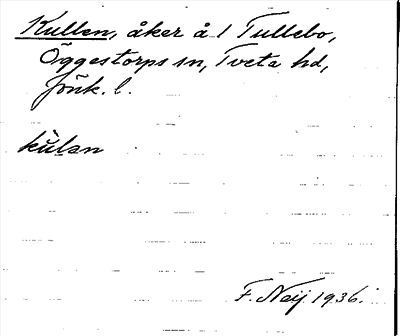 Kullen, åker å 1 Tullebo,
Öggestorps sn, Tveta hd,
Jönk. l.
kùlan
F. Neij 1936.